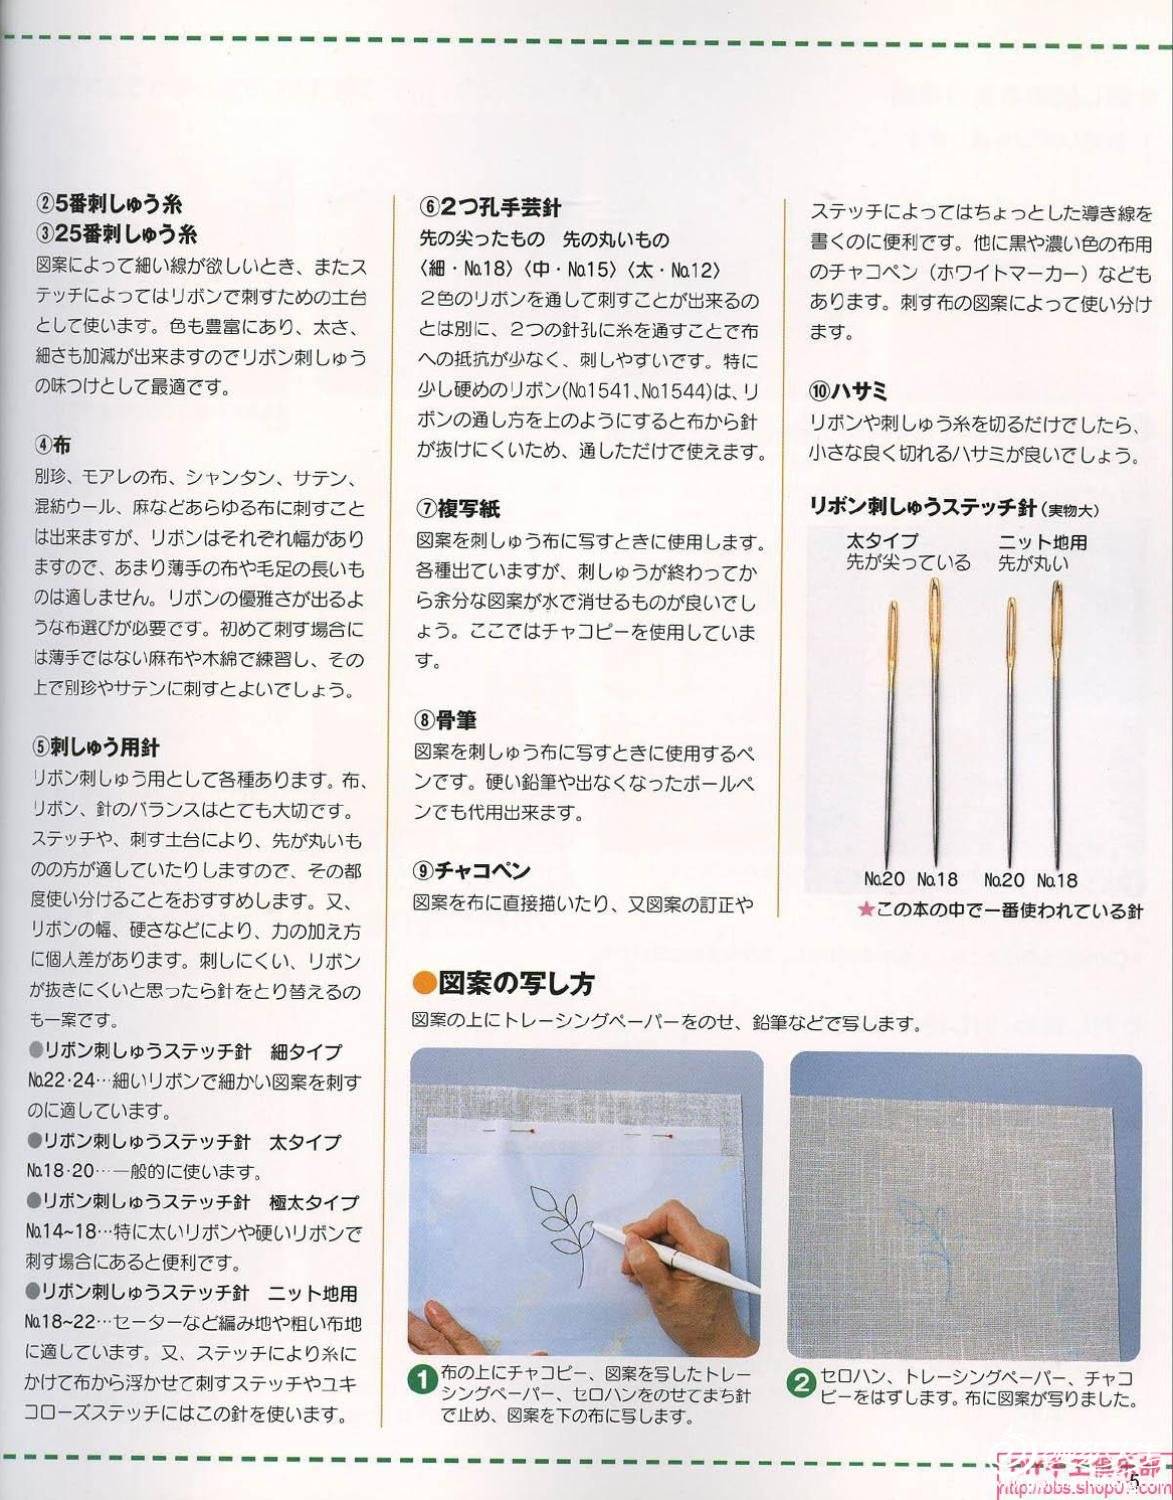 ②5番刺しゅう糸
③25番刺しゅう糸
図案によって細い線が欲しいとき、またス
テッチによってはリボンで刺すための土台
として使います。色も豊富にあり、太さ、
細さも加減が出来ますのでリボン刺しゅう
の味つけとして最適です。
④布
別珍、モアレの布、シャンタン、サテン、
混紡ウール、麻などあらゆる布に刺すこと
は出来ますが、リボンはそれぞれ幅があり
ますので、あまり薄手の布や毛足の長いも
のは適しません。リボンの優雅さが出るよ
うな布選びが必要です。初めて刺す場合に
は薄手ではない麻布や木綿で練習し、その
上で別珍やサテンに刺すとよいでしょう。
⑤刺しゅう用針
リボン刺しゅう用として各種あります。布、
リボン、針のバランスはとても大切です。
ステッチや、刺す土台により、先が丸いも
のの方が適していたりしますので、その都
度使い分けることをおすすめします。又、
リボンの幅、硬さなどにより、力の加え方
に個人差があります。刺しにくい、リボン
が抜きにくいと思ったら針をとり替えるの
も一案です。
●リボン刺しゅうステッチ針 細タイプ
№22・24…細いリボンで細かい図案を刺す
のに適しています。
●リボン刺しゅうステッチ針 太タイプ
№18・20…一般的に使います。
●リボン刺しゅうステッチ針 極太タイプ
№14~18…特に太いリボンや硬いリボンで
刺す場合にあると便利です。
●リボン刺しゅうステッチ針 ニット地用
№18~22…セーターなど編み地や粗い布地
に適しています。又、ステッチにより糸に
かけて布から浮かせて刺すステッチやユキ
コローズステッチにはこの針を使います。
⑥2つ孔手芸針
先の尖ったもの 先の丸いもの
〈細・№18〉〈中・№15〉〈太・№12〉
２色のリボンを通して刺すことが出来るの
とは別に、２つの針孔に糸を通すことで布
への抵抗が少なく、刺しやすいです。特に
少し硬めのリボン(№1541、№1544)は、リ
ボンの通し方を上のようにすると布から針
が抜けにくいため、通しただけで使えます。
⑦複写紙
図案を刺しゅう布に写すときに使用します。
各種出ていますが、刺しゅうが終わってか
ら余分な図案が水で消せるものが良いでし
ょう。ここではチャコピーを使用していま
す。
⑧骨筆
図案を刺しゅう布に写すときに使用するペ
ンです。硬い鉛筆や出なくなったボールペ
ンでも代用出来ます。
⑨チャコペン
図案を布に直接描いたり、又図案の訂正や
ステッチによってはちょっとした導き線を
書くのに便利です。他に黒や濃い色の布用
のチャコペン（ホワイトマーカー）なども
あります。刺す布の図案によって使い分け
ます。
⑩ハサミ
リボンや刺しゅう糸を切るだけでしたら、
小さな良く切れるハサミが良いでしょう。
リボン刺しゅうステッチ針（実物大）
太タイプ ニット地用
先が尖っている 先が丸い
№20 №18 №20 №18
★この本の中で一番使われている針
●図案の写し方
図案の上にトレーシングペーパーをのせ、鉛筆などで写します。
1 布の上にチャコピー、図案を写したトレー
シングペーパー、セロハンをのせてまち針
で止め、図案を下の布に写します。
2 セロハン、トレーシングペーパー、チャコ
ピーをはずします。布に図案が写りました。
5
http://bbs.shop01.com